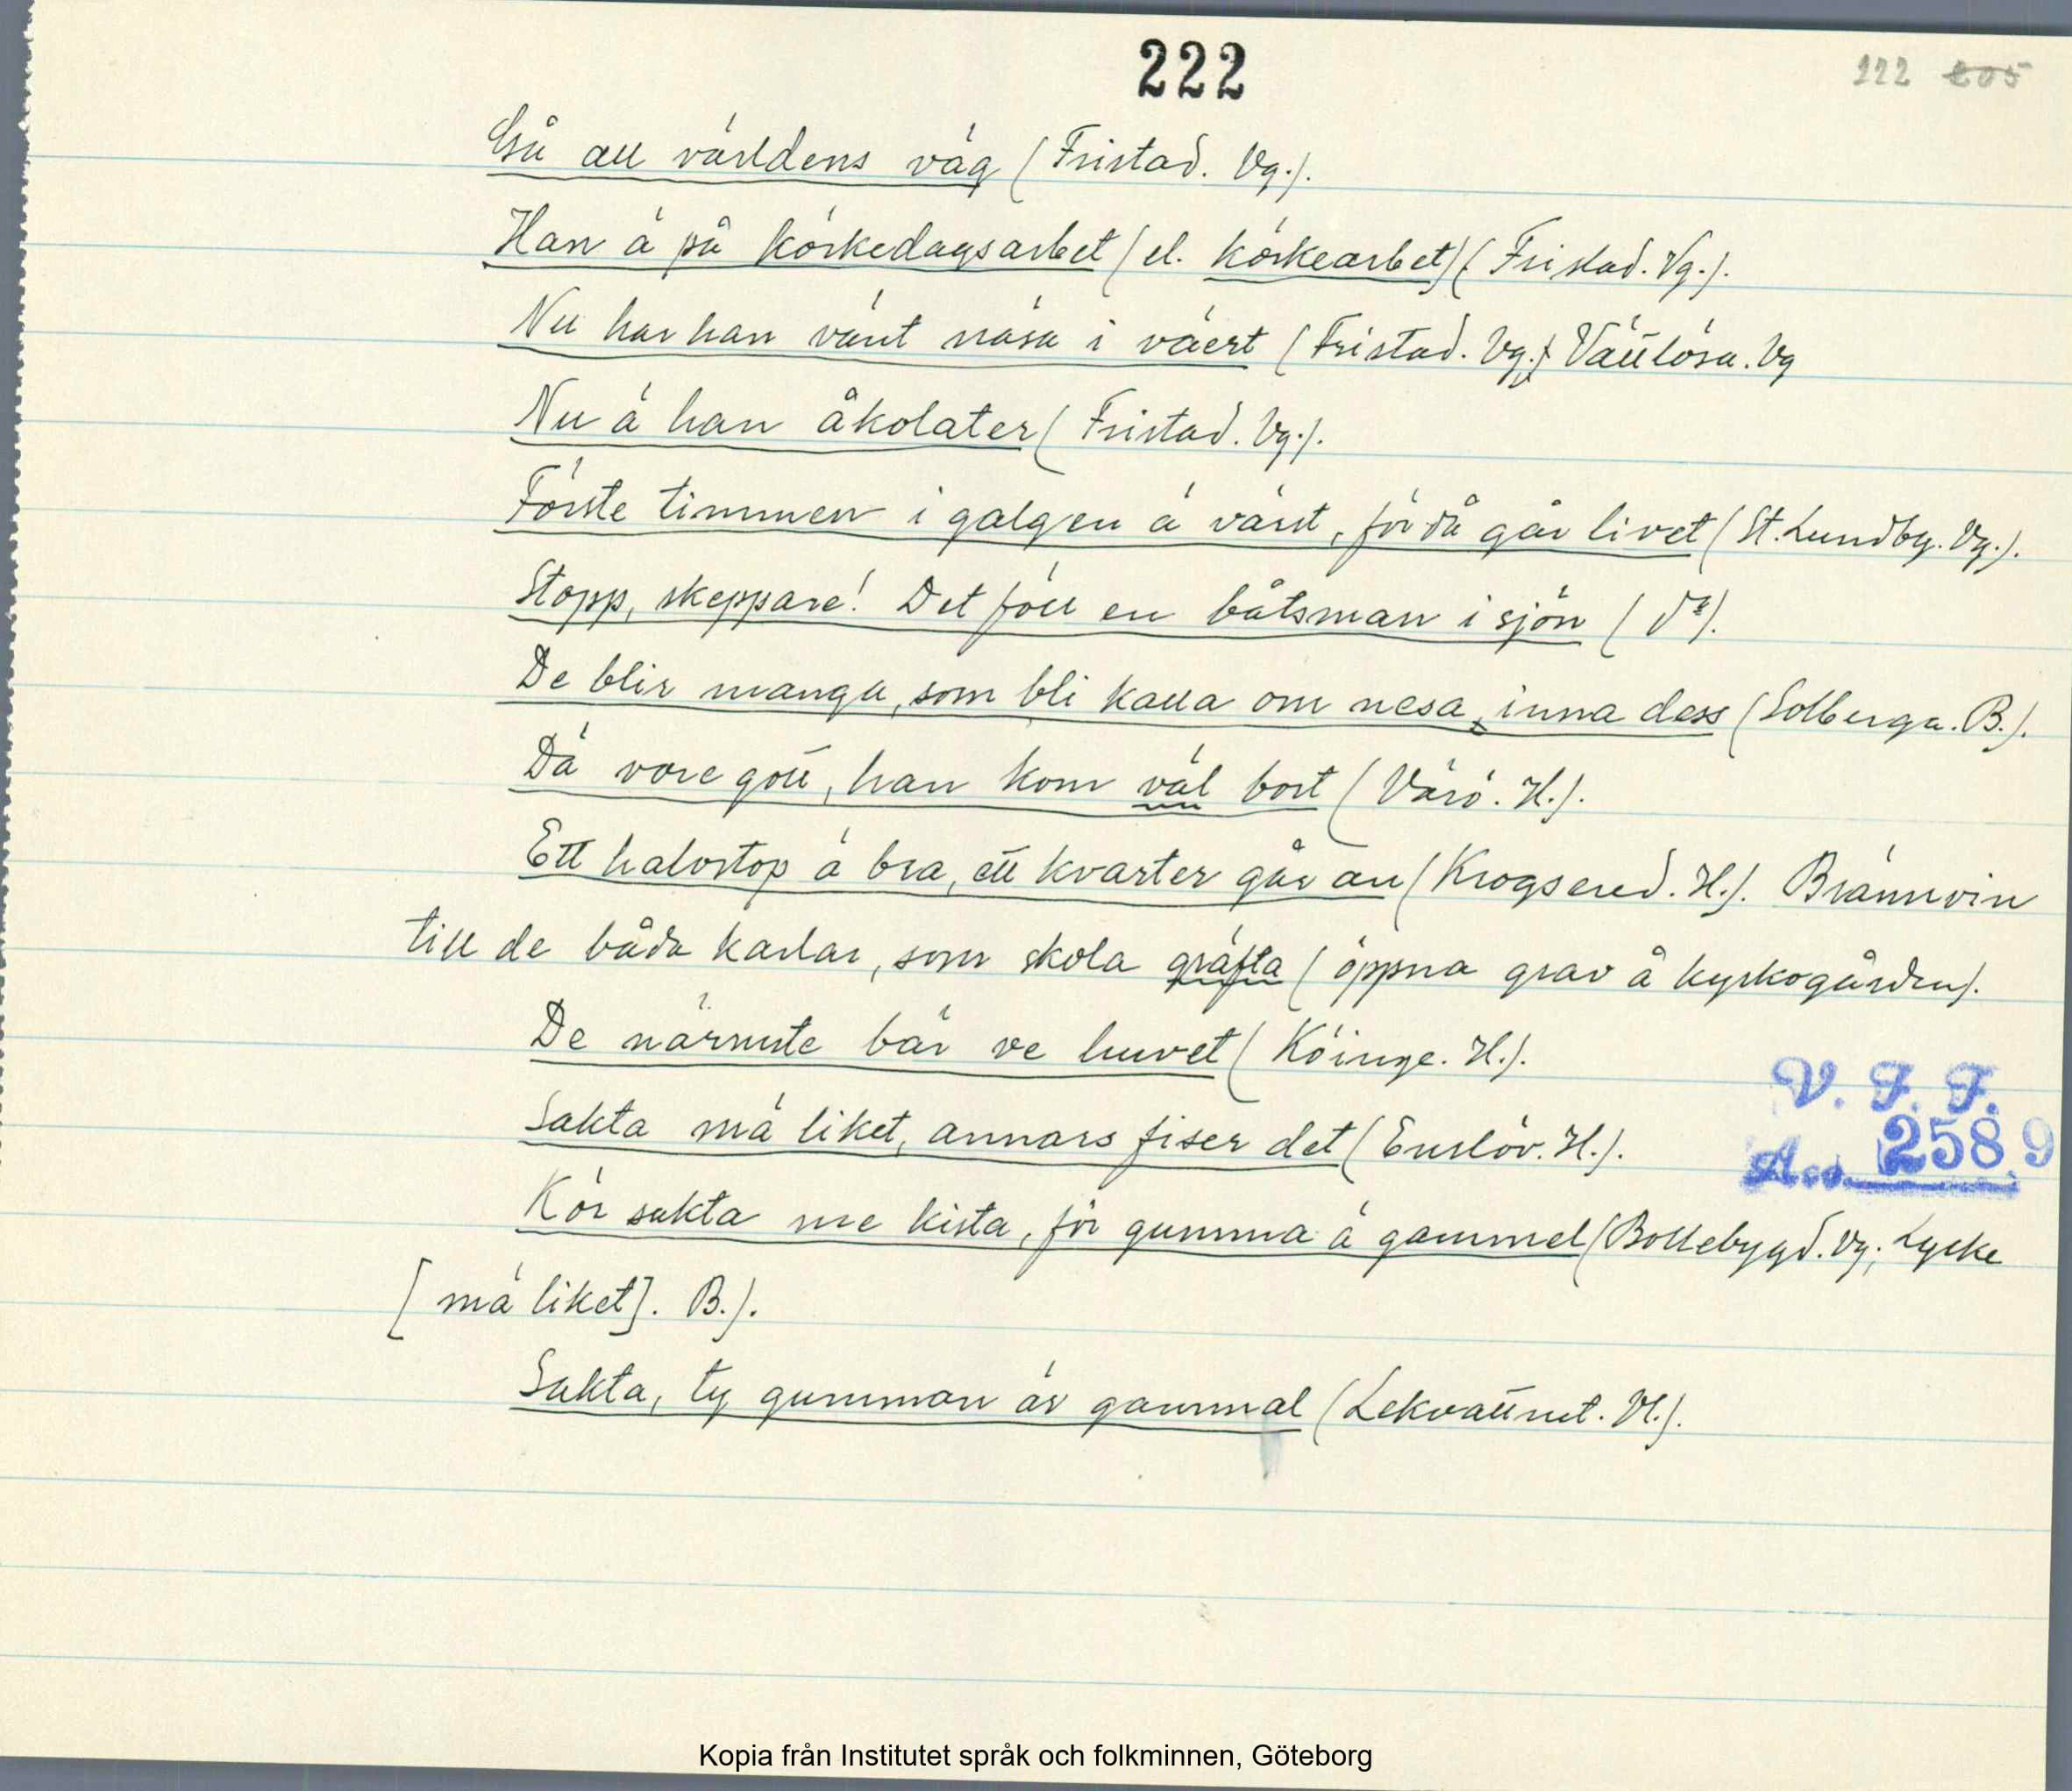 222
222 205
Gå all världens väg (Fristad. Vg.).
Han ä på körkedagsarbet (el. körkearbet) (Fristad. Vg.).
Nu har han vänt näsa i väert (Fristad. Vg.; Vättlösa. Vg
Nu ä han åkolater (Fristad. Vg.).
Förste timmen i galgen ä värst, för då går livet (St. Lundby. Vg.).
Stopp, skeppare! Det föll en båtsman i sjön (do).
De blir manga, som bli kalla om nesa, inna dess (Solberga. B.).
Dä vore gott, han kom väl bort (Värö. H.).
Ett halvstop ä bra, ett kvarter går an (Krogsered. H.). Brännvin
till de båda karlar, som skola gräfta (öppna grav å kyrkogården).
De närmste bär ve huvet (Köinge. H.).
V. F. F.
Sakta mä liket, annars fiser det (Enslöv. H.).
Acc. 2589
Kör sakta me kista, för gumma ä gammel (Bollebygd. Vg; Lycke
[mä liket]. B.).
Sakta, ty gumman är gammal (Lekvattnet. Vl.).
Kopia från Institutet språk och folkminnen, Göteborg